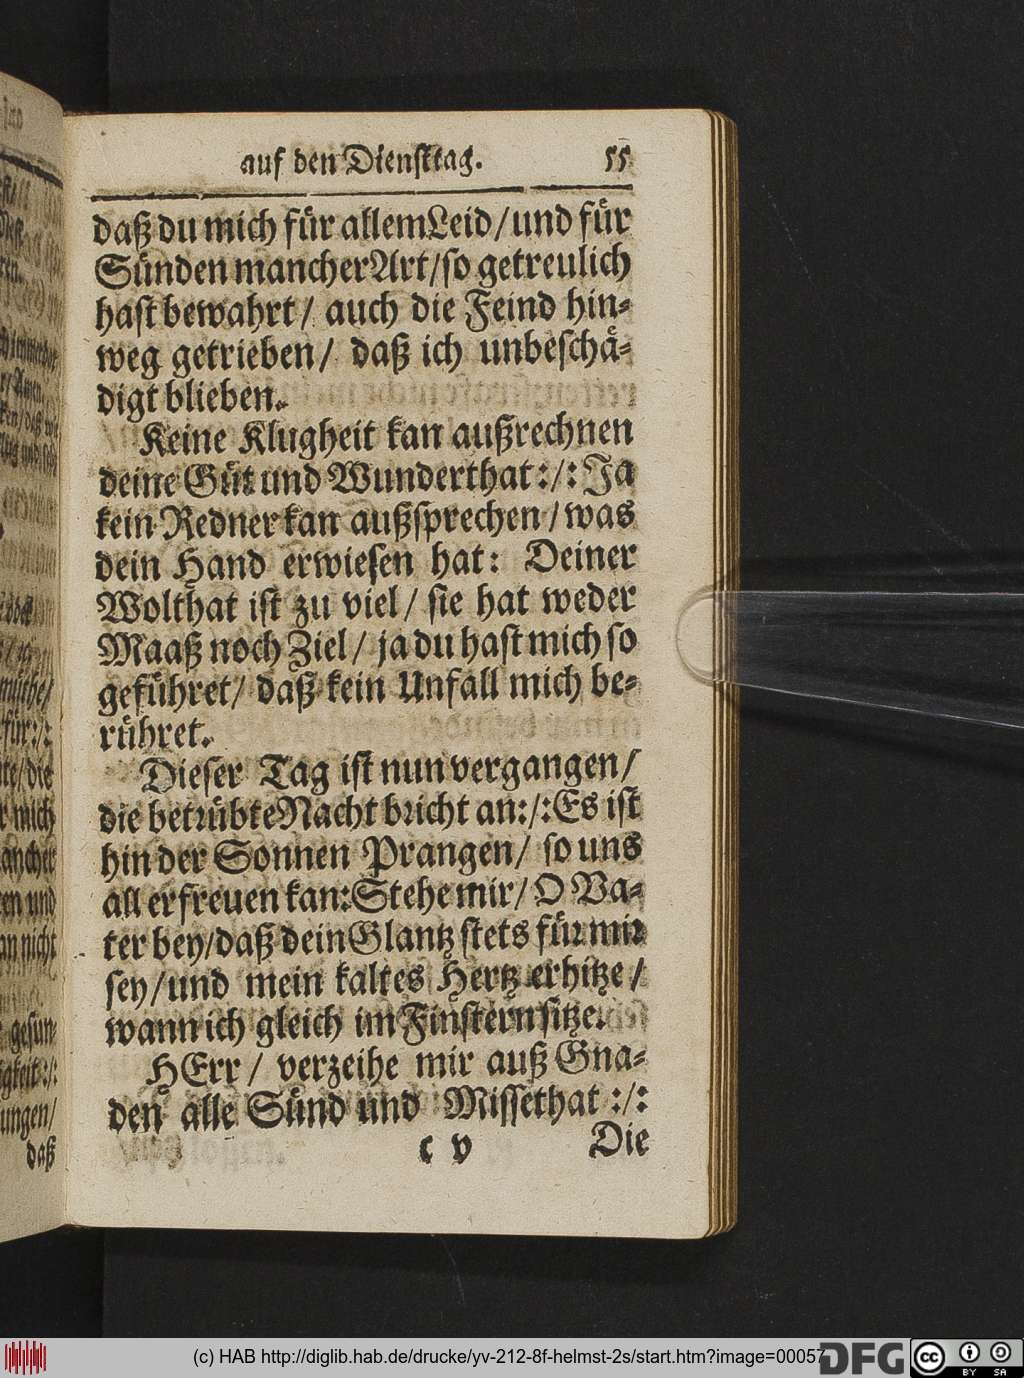 auf den Diensttag. 55
daß du mich für allem Leid/und für
Sünden mancher Art/so getreulich
hast bewahrt/ auch die Feind hin-
weg getrieben/ daß ich unbeschä-
digt blieben.
Keine Klugheit kan außrechnen
deine Güt und Wunderthat:/: Ja
kein Redner kan außsprechen/was
dein Hand erwiesen hat: Deiner
Wolthat ist zu viel/ sie hat weder
Maaß noch Ziel/ ja du hast mich so
geführet/ daß kein Unfall mich be-
rühret.
Dieser Tag ist nun vergangen/
die betrübte Nacht bricht an:/: Es ist
hin der Sonnen Prangen/ so uns
all erfreuen kan: Stehe mir/ O Va-
ter bey/daß dein Glantz stets für mir
sey/und mein kaltes Hertz erhitze/
wann ich gleich im Finstern sitze.
HErr/ verzeihe mir auß Gna-
den alle Sünd und Missethat :/:
c v Die
mich
ancher
en und
an nicht
gesun-
gkeit:/:
ungen/
daß
(c) HAB http://diglib.hab.de/drucke/yv-212-8f-helmst-2s/start.htm?image=00057
DFG
cc BY SA